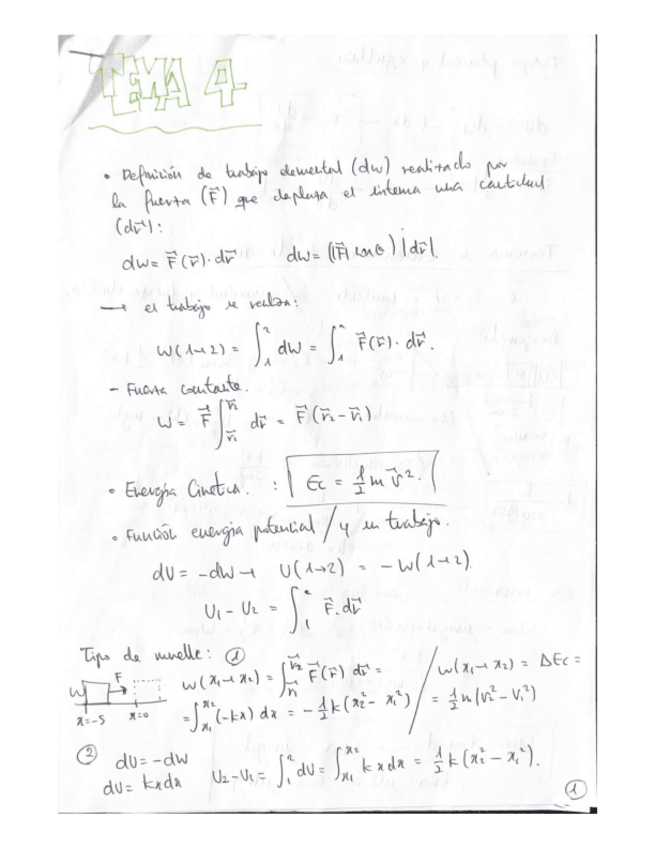 TEMA 4
• Definición de trabajo elemental (dw) realizado por
la fuerza (F⃗) que desplaza el sistema una cantidad
(dr⃗):
dw = F⃗(r⃗)·dr⃗    dw = (|F⃗| cosθ) |dr⃗|.
→ el trabajo se realiza:
W(1→2) = ∫₁² dW = ∫₁² F⃗(r⃗)· dr⃗.
- Fuerza constante.
W = F⃗ ∫ dr⃗ = F⃗
• Energía Cinética. : Ec = 1/2 m v⃗².
• Función energía potencial / y un trabajo.
dU = -dW → U(1→2) = -W(1→2).
U₁ - U₂ = ∫₁² F⃗.dr⃗
Tipo de muelle: ① W(x₁→x₂) = ∫ F⃗(r⃗) dr⃗ = / W(x₁→x₂) = ΔEc =
W F x=-5 x=0
= ∫ₓ₁ˣ² (-kx) dx = -1/2 k(x₂² - x₁²) / = 1/2 m (v₂² - v₁²)
② dU = -dW
dU = kxdx    U₂-U₁ = ∫₁² dU = ∫ₓ₁ˣ² kxdx = 1/2 k (x₂² - x₁²).
①